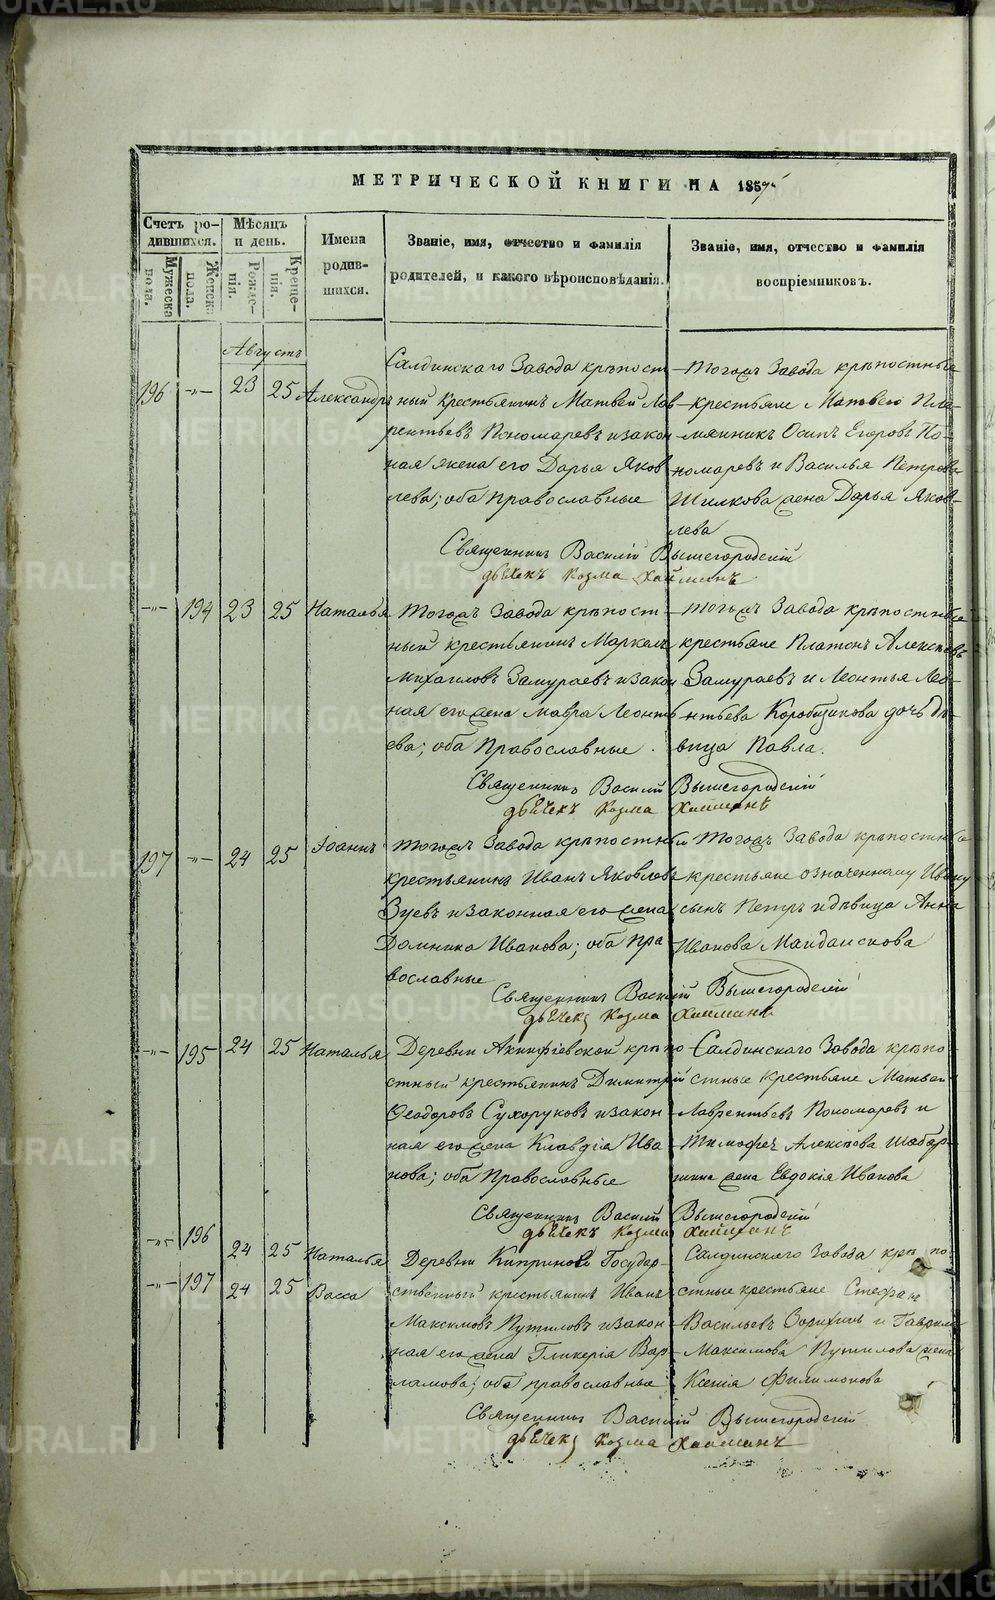 МЕТРИЧЕСКОЙ КНИГИ НА 1857
Счетъ родившихся.
Мужеска пола.
Женска пола.
Мѣсяцъ и день.
Рожденія.
Крещенія.
Имена родившихся.
Званіе, имя, отчество и фамилія родителей, и какого вѣроисповѣданія.
Званіе, имя, отчество и фамилія воспріемниковъ.
Августъ
196 -"- 23 25 Александръ
Салдинскаго Завода крѣпост-
ный крестьянинъ Матвей Лав-
рентьевъ Пономаревъ и закон
ная жена его Дарья Яков
лева; оба православные
Тогожъ Завода крѣпостные
крестьяне Матвею Пле-
мянникъ Осипъ Егоровъ По-
номаревъ и Василья Петрова
Шилкова жена Дарья Яков-
лева
Священникъ Василій Вышегородскій
дьячекъ Козма Хайминъ
-"- 194 23 25 Наталья
Тогожъ Завода крѣпост-
ный крестьянинъ Маркелъ
Михаиловъ Замураевъ и закон
ная его жена Мавра Леонть
ева; оба Православные.
Тогожъ Завода крѣпостные
крестьяне Платонъ Алексѣевъ
Замураевъ и Леонтья Лео-
нтьева Коробщикова дочь дѣ-
вица Павла.
Священникъ Василій Вышегородскій
дьячекъ Козма Хайминъ
197 -"- 24 25 Іоаннъ
Тогожъ Завода крѣпостный
крестьянинъ Иванъ Яковлевъ
Зуевъ и законная его жена
Домника Иванова; оба пра
вославные
Тогожъ Завода крѣпостные
крестьяне означенному Ивану
сынъ Петръ и дѣвица Анна
Иванова Майданскова
Священникъ Василій Вышегородскій
дьячекъ Козма Хайминъ
-"- 195 24 25 Наталья
Деревни Акинфіевской крѣпо
стный крестьянинъ Димитрій
Ѳеодоровъ Сухоруковъ и закон
ная его жена Клавдія Ива
нова; оба Православные
Салдинскаго Завода крѣпо-
стные крестьяне Матвей
Лаврентьевъ Пономаревъ и
Тимофея Алексѣева
жена Евдокія Иванова
Священникъ Василій Вышегородскій
дьячекъ Козма Хайминъ
-"- 196 24 25 Наталья
-"- 197 24 25 Васса
Деревни Киприной Государ-
ственный крестьянинъ Иванъ
Максимовъ Путиловъ и закон
ная его жена Гликерія Вар-
ламова; оба православные
Салдинскаго Завода крѣпо-
стные крестьяне Стефанъ
Васильевъ и Гаврила
Максимова Путилова жена
Ксенія Филимонова
Священникъ Василій Вышегородскій
дьячекъ Козма Хайминъ
METRIKI.GASO-URAL.RU